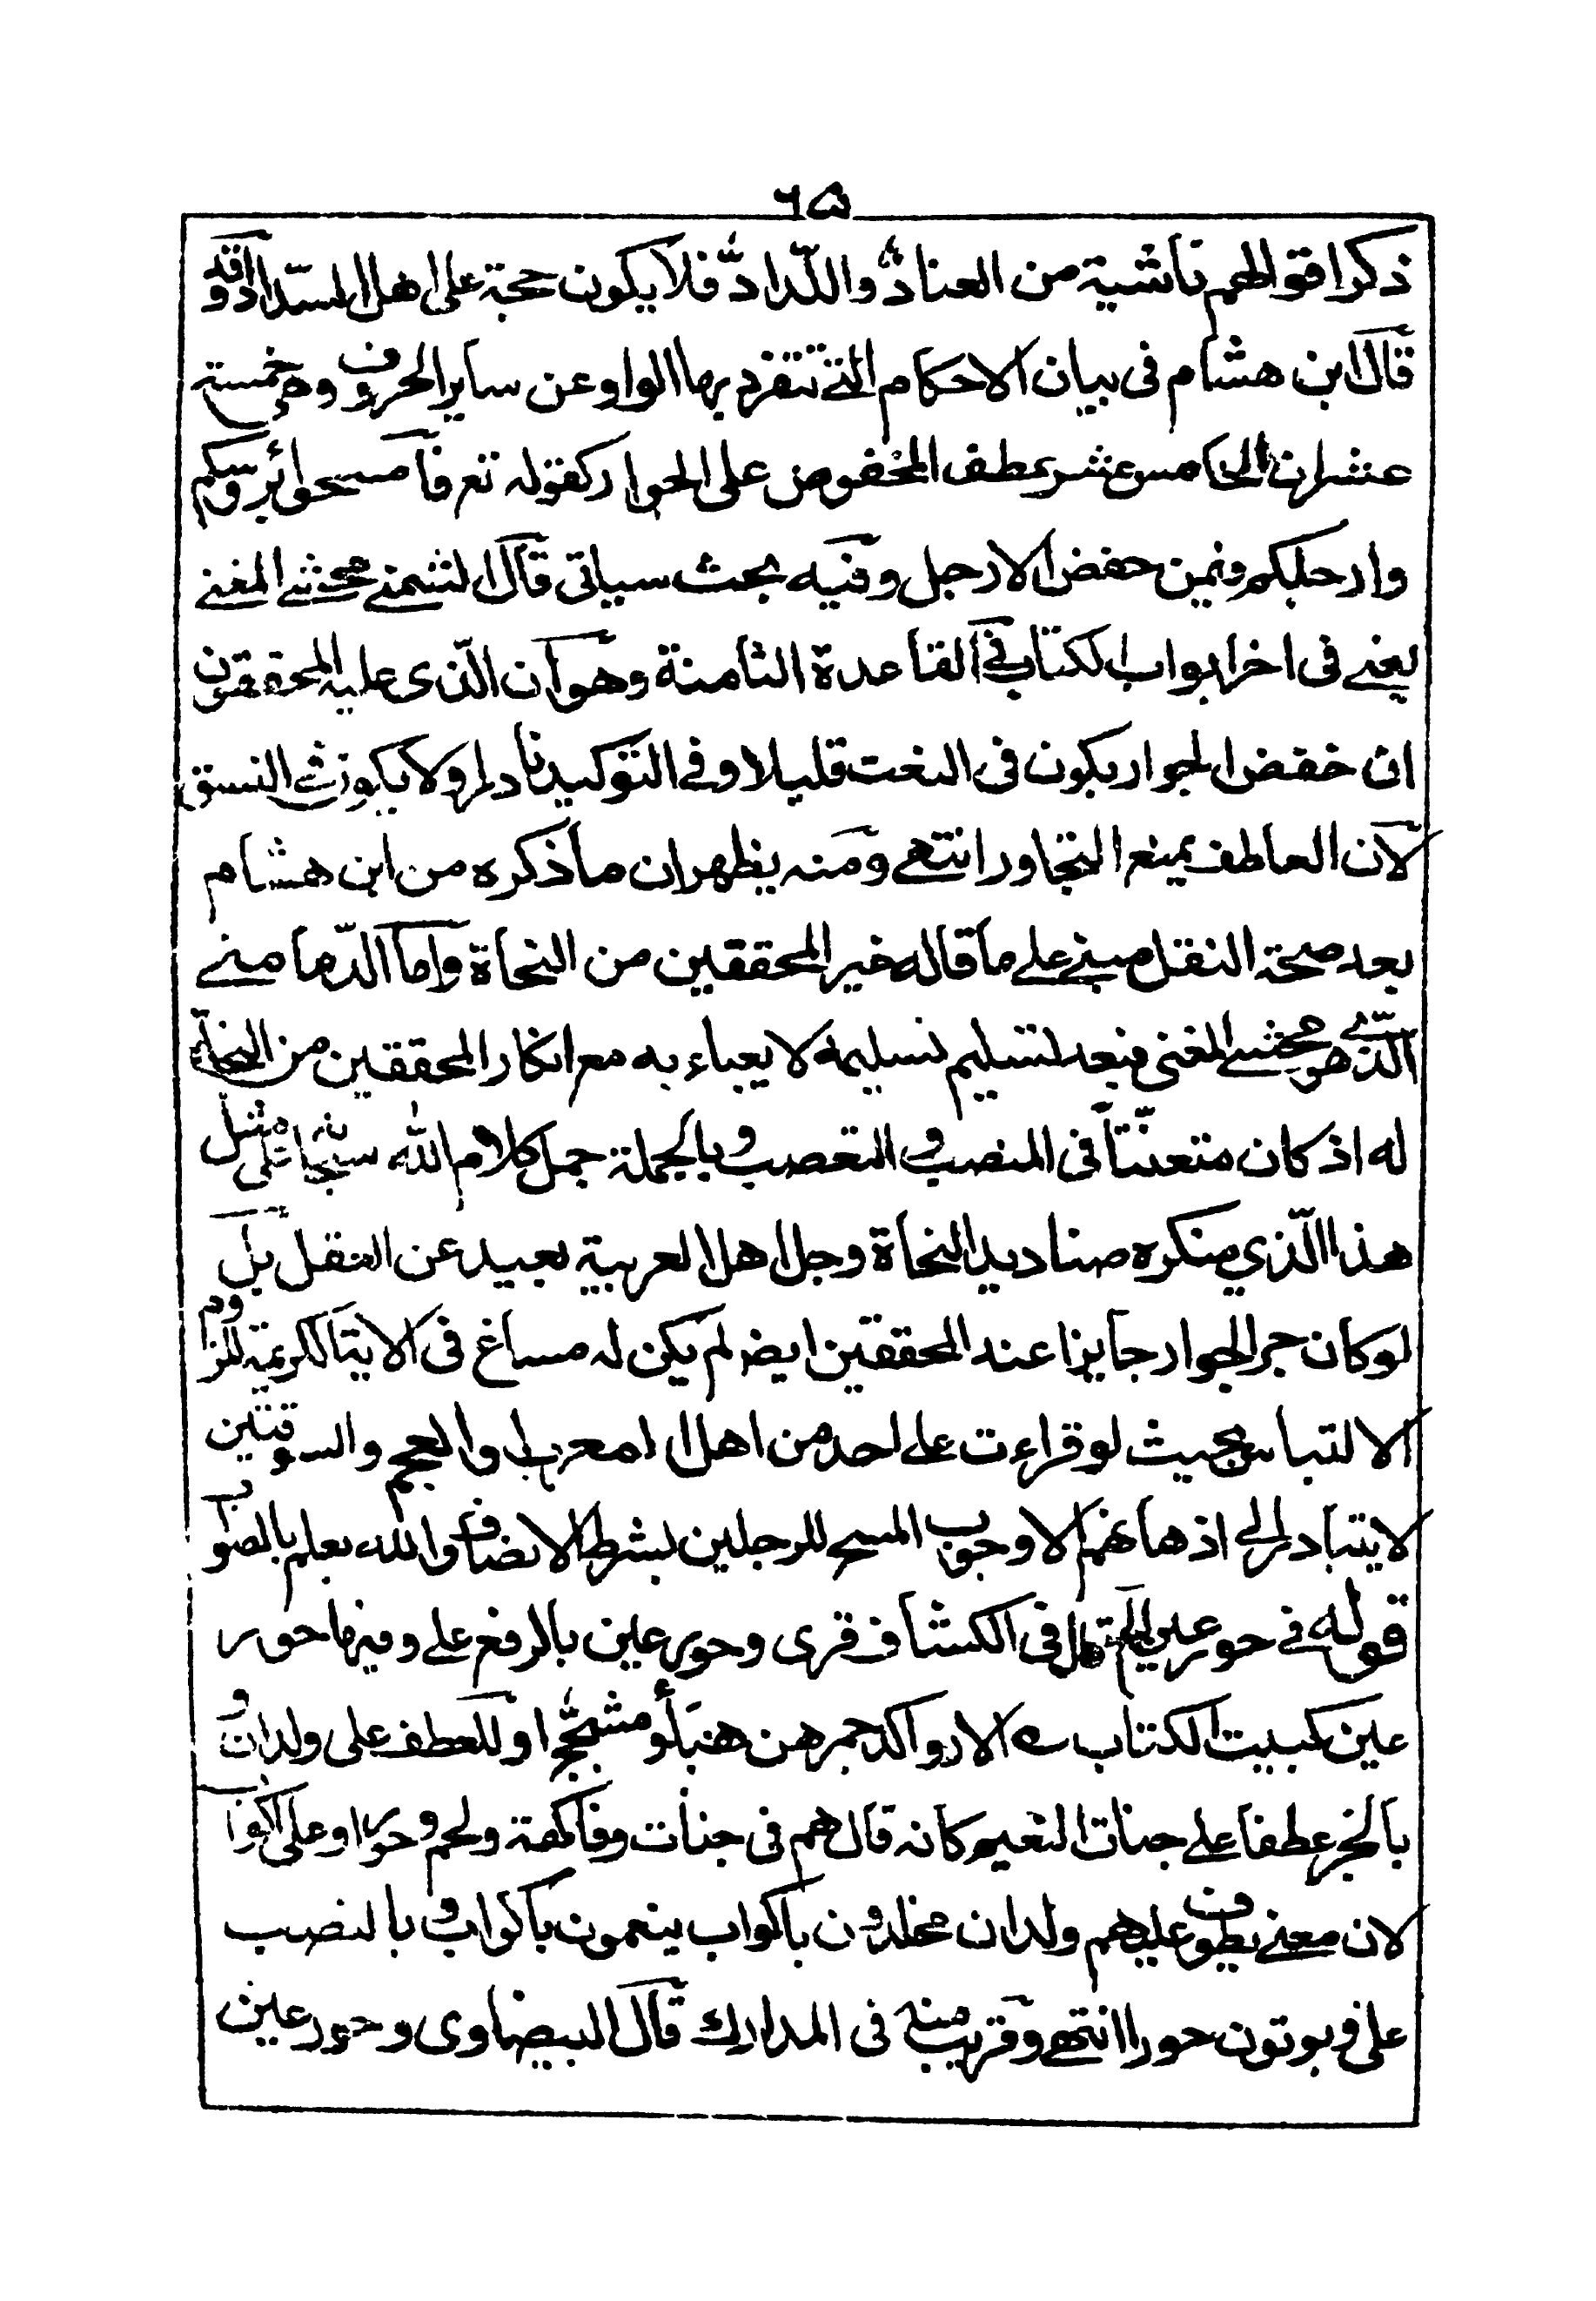 ٦٥
ذكر اقوالهم ناشية من العناد واللّداد فلا يكون حجة على اهل السّداد وقد
قال ابن هشام فى بيان الاحكام التي تتفرد بها الواو عن ساير الحروف وهى خمسة
عشر ان الخامس عشر عطف المخفوض على الجوار كقوله تعر فامسحوا برؤسكم
وارجلكم فيمن خفض الارجل وفيه بحث سياتى قال الشمنے محشے المغنے
يعنے فى اخر ابواب الكتاب فے القاعدة الثامنة وهو ان الّذى عليه المحققون
ان خفض الجوار يكون فى النعت قليلا وفے التوكيد نادرا ولا يكون فے النسق
لان العاطف يمنع التجاور انتهے ومنه يظهر ان ما ذكره من ابن هشام
بعد صحة النقل مبنے علے ما قاله خير المحققين من النحاة واما الدّمامينے
الّذے هو محشے المغنى فبعد تسليم تسليمه لا يعباء به مع انكار المحققين من النحاة
له اذ كان متعنّتاً فى المنصب و التعصب وبالجملة حمل كلام الله سبحانه على مثل
هذا الّذي ينكره صناديد النحاة وجل اهل العربية بعيد عن العقل بل
لو كان جر الجوار جايزا عند المحققين ايضا لم يكن له مساغ فى الاية الكريمة للزوم
الالتباس بحيث لو قراءت على احد من اهل العرب والعجم والسوقيين
لا يتبادر الے اذهانهم الا وجوب المسح للرجلين بشرط الانصاف والله يعلم بالصواب
قوله فے حور عين الخ قال فى الكشاف قرى وحور عين بالرفع علے وفيها حور
عين كبيت الكتاب ے الا رواكد جمرهن هباء ومشجّج او للعطف على ولدان و
بالجر عطفا علے جنات النعيم كانه قال هم فى جنات وفاكهة ولحم وحور او على اكواب
لان معنے يطوف عليهم ولدان مخلدون باكواب ينعمون باكواب و بالنصب
على ويوتون حورا انتهے وقريب منه فى المدارك قال البيضاوى وحور عين